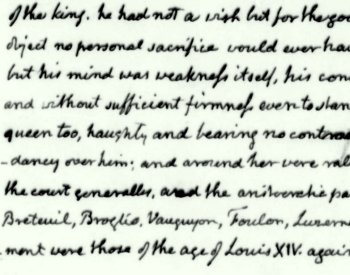 of the king. he had not a wish but for the goo
object no personal sacrifice would ever hav
but his mind was weakness itself, his con
and without sufficient firmness even to stan
queen too, haughty and bearing no contra
-dancy over him; and around her were ral
the court generally, and the aristocratic pa
Breteuil, Broglio, Vauguyon, Foulon, Luzerne
mont were those of the age of Louis XIV. again